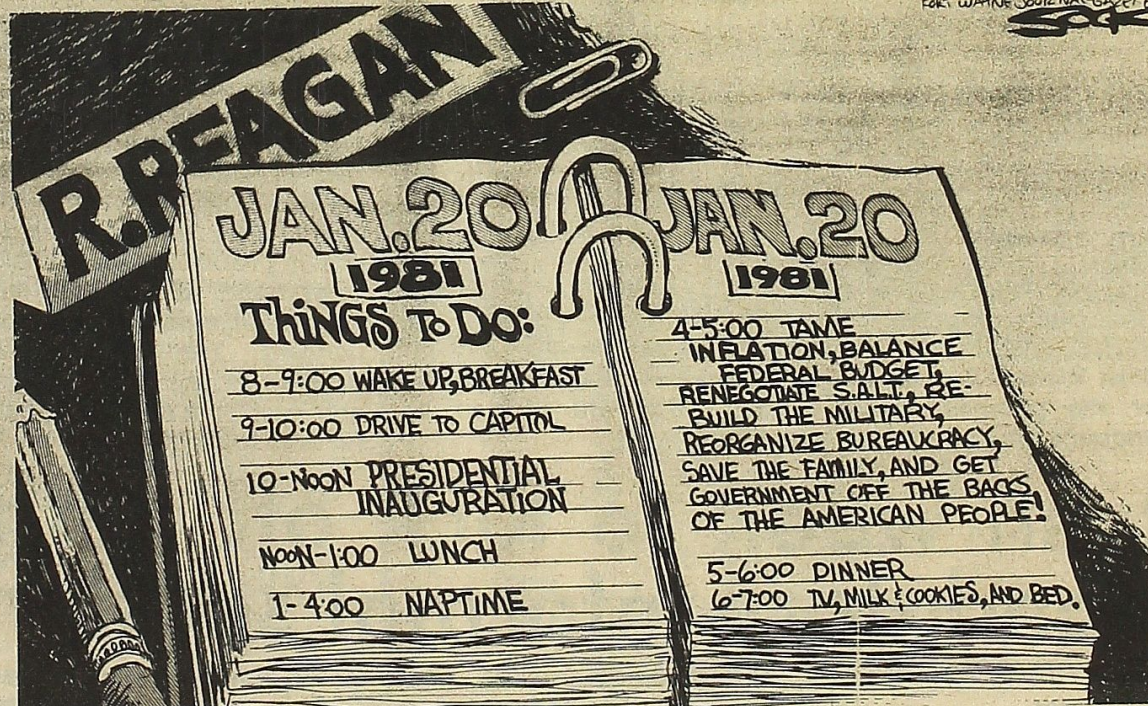 FORT WAYNE JOURNAL-GAZETTE
R. REAGAN
JAN. 20
1981
THINGS TO DO:
8-9:00 WAKE UP, BREAKFAST
9-10:00 DRIVE TO CAPITOL
10-NOON PRESIDENTIAL
INAUGURATION
NOON-1:00 LUNCH
1-4:00 NAPTIME
JAN. 20
1981
4-5:00 TAME
INFLATION, BALANCE
FEDERAL BUDGET,
RENEGOTIATE S.A.L.T., RE-
BUILD THE MILITARY,
REORGANIZE BUREAUCRACY,
SAVE THE FAMILY, AND GET
GOVERNMENT OFF THE BACKS
OF THE AMERICAN PEOPLE!
5-6:00 DINNER
6-7:00 TV, MILK & COOKIES, AND BED.